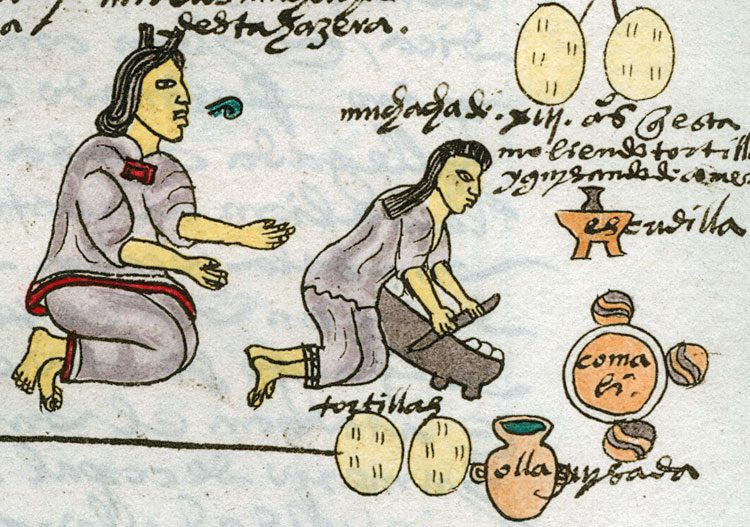 desta hazera.
muchacha de .xiii. años q̃ esta
moliendo tortill
y guisando de comer
escudilla
coma
li.
tortillas
olla guisada